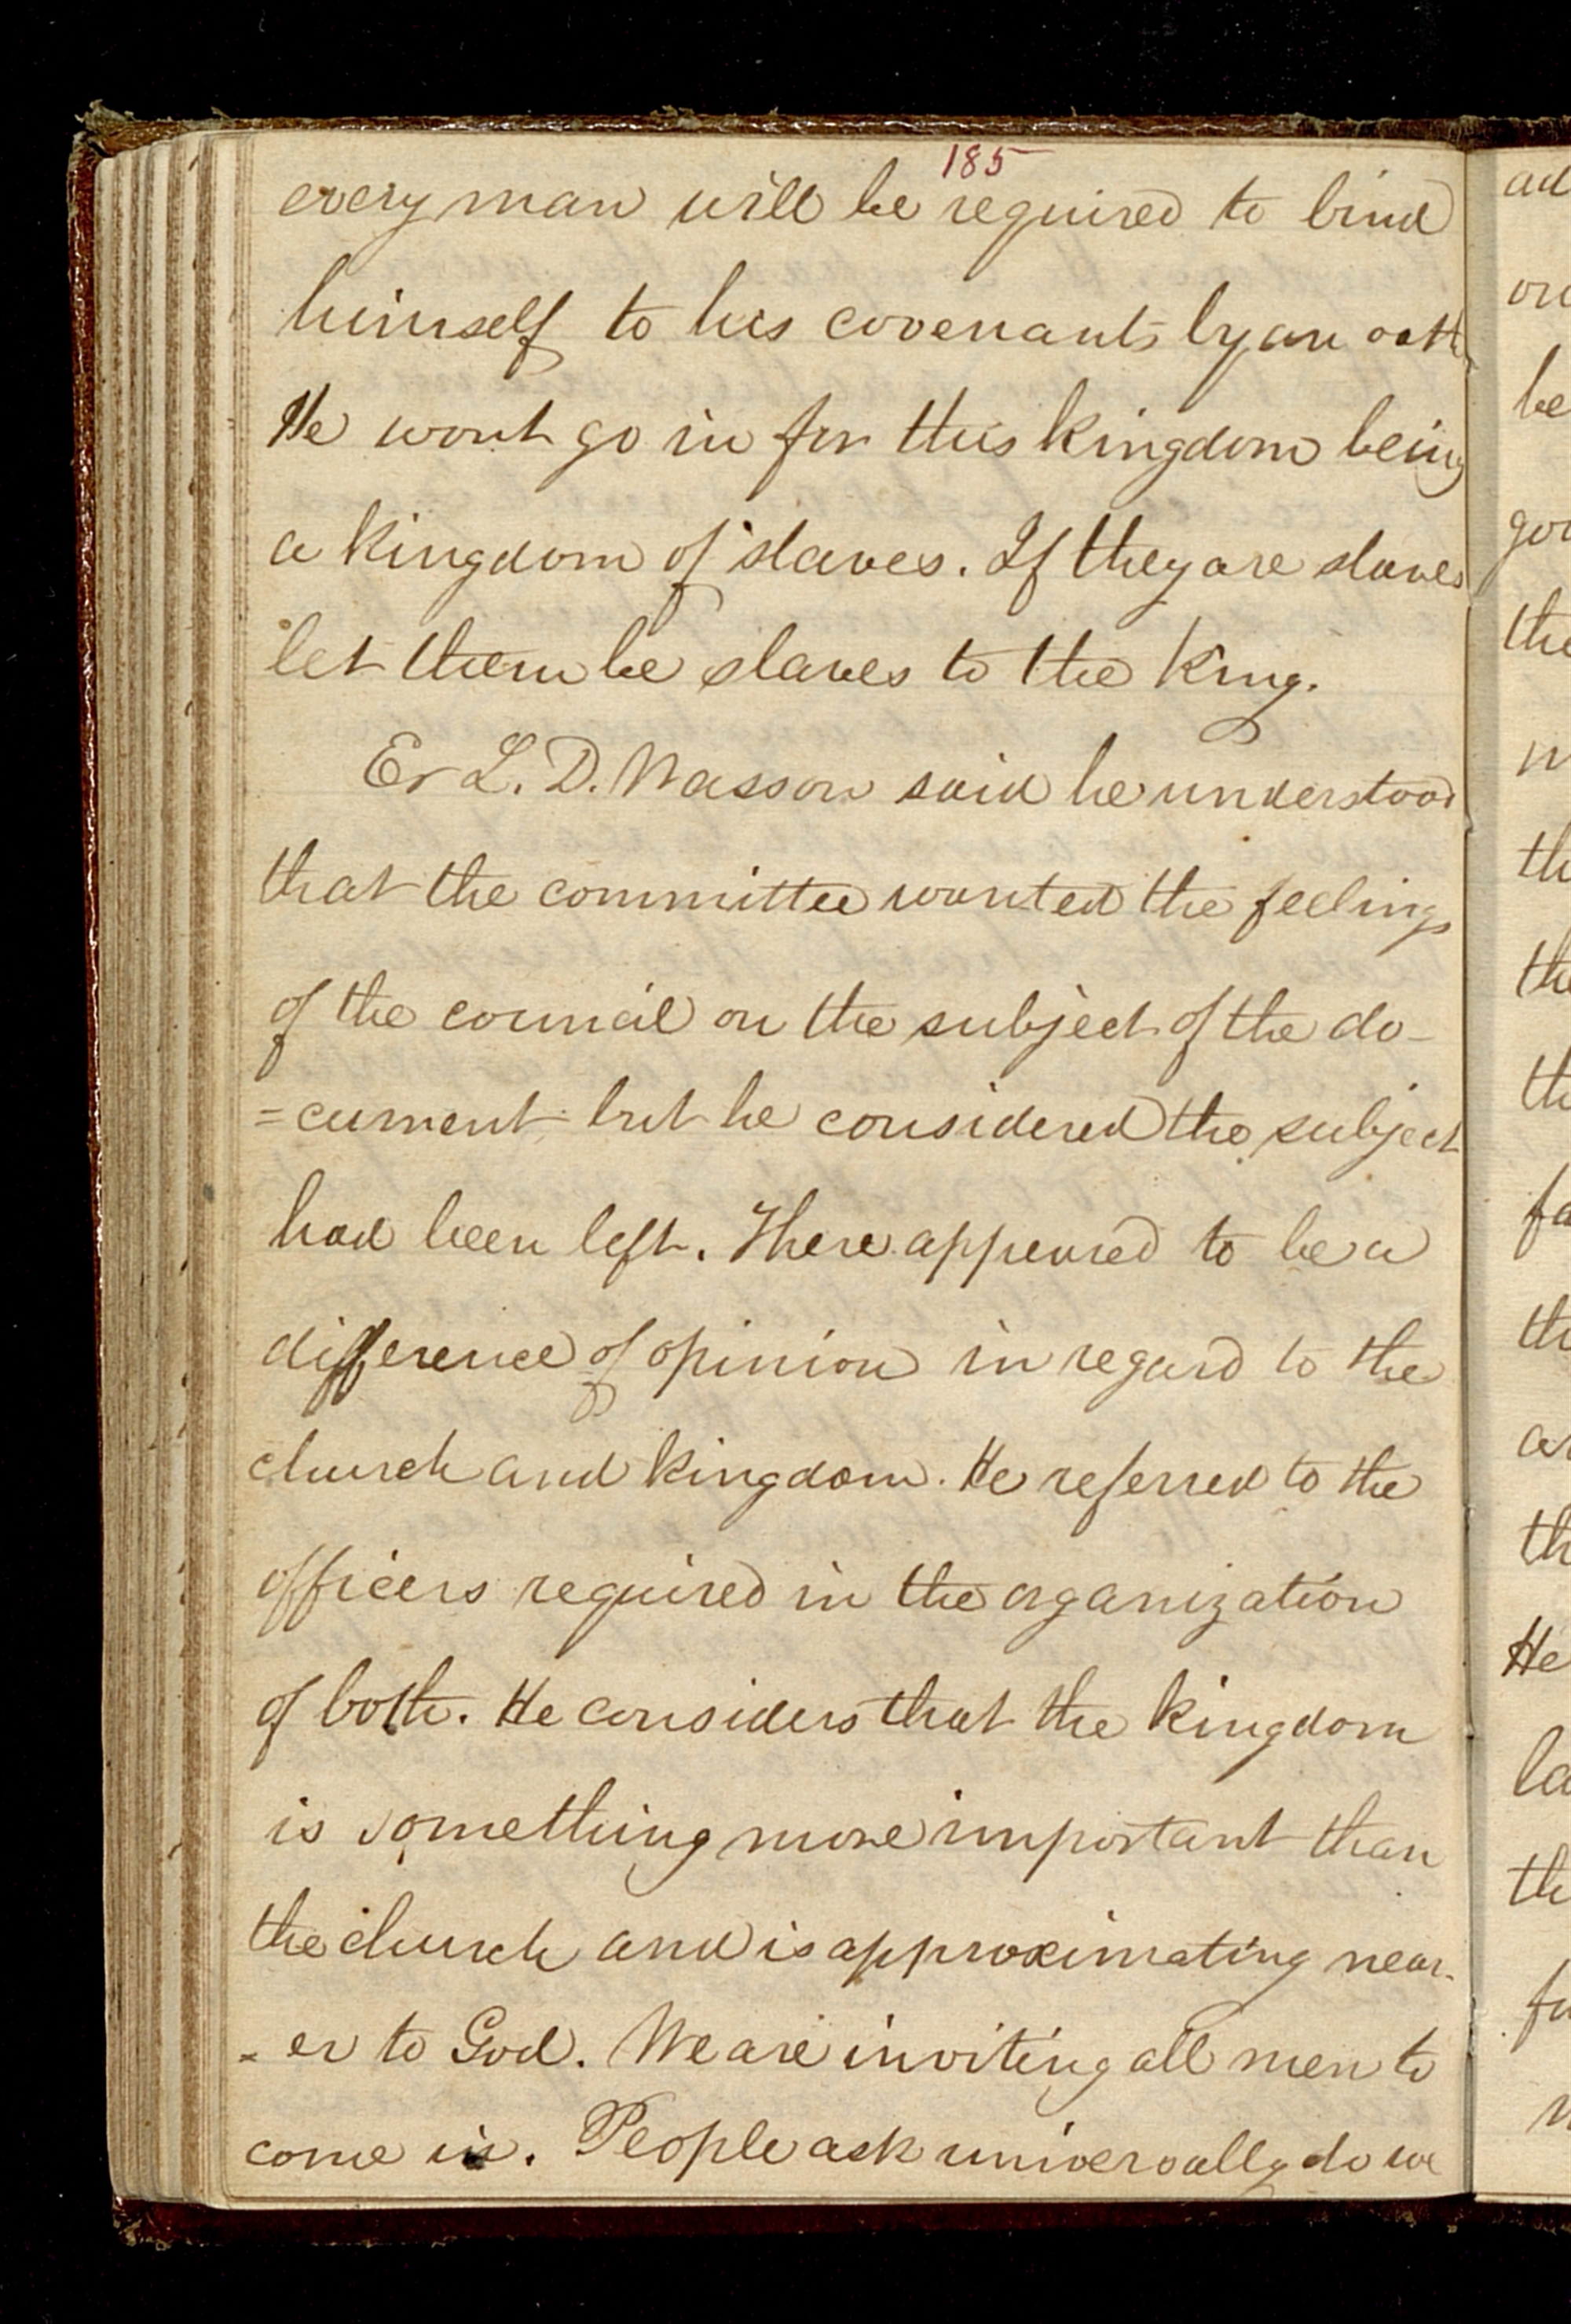 185
every man will be required to bind
himself to his covenants by an oath
He wont go in for this kingdom being
a kingdom of slaves. If they are slaves
let them be slaves to the King.
Er L. D. Wasson said he understood
that the committee wanted the feelings
of the council on the subject of the do-
=cument but he considered the subject
had been left. There appeared to be a
difference of opinion in regard to the
church and kingdom. He referred to the
officers required in the organization
of both. He considers that the kingdom
is something more important than
the church and is approximating near-
-er to God. We are inviting all men to
come in. People ask universally do we
ad
be
the
th
the
th
fa
th
th
He
la
th